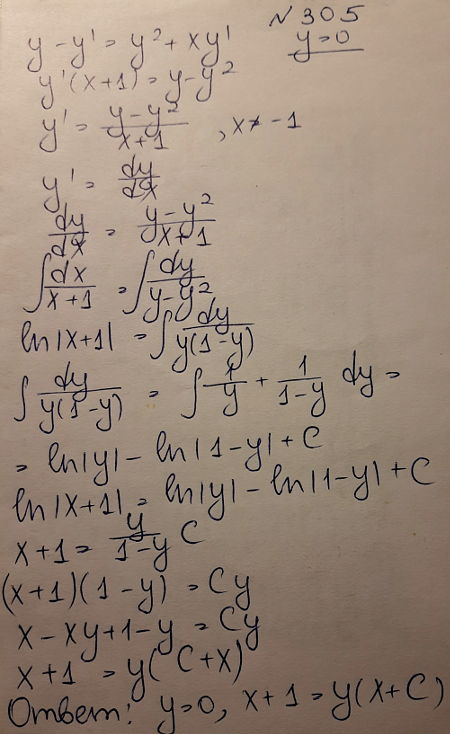 N 305
y=0
y - y' = y² + xy'
y'(x+1) = y - y²
y' = (y-y²)/(x+1) , x ≠ -1
y' = dy/dx
dy/dx = (y-y²)/(x+1)
∫ dx/(x+1) = ∫ dy/(y-y²)
ln|x+1| = ∫ dy/(y(1-y))
∫ dy/(y(1-y)) = ∫ 1/y + 1/(1-y) dy =
= ln|y| - ln|1-y| + C
ln|x+1| = ln|y| - ln|1-y| + C
x+1 = y/(1-y) C
(x+1)(1-y) = Cy
x - xy + 1 - y = Cy
x+1 = y(C+x)
Ответ: y=0, x+1 = y(x+C)